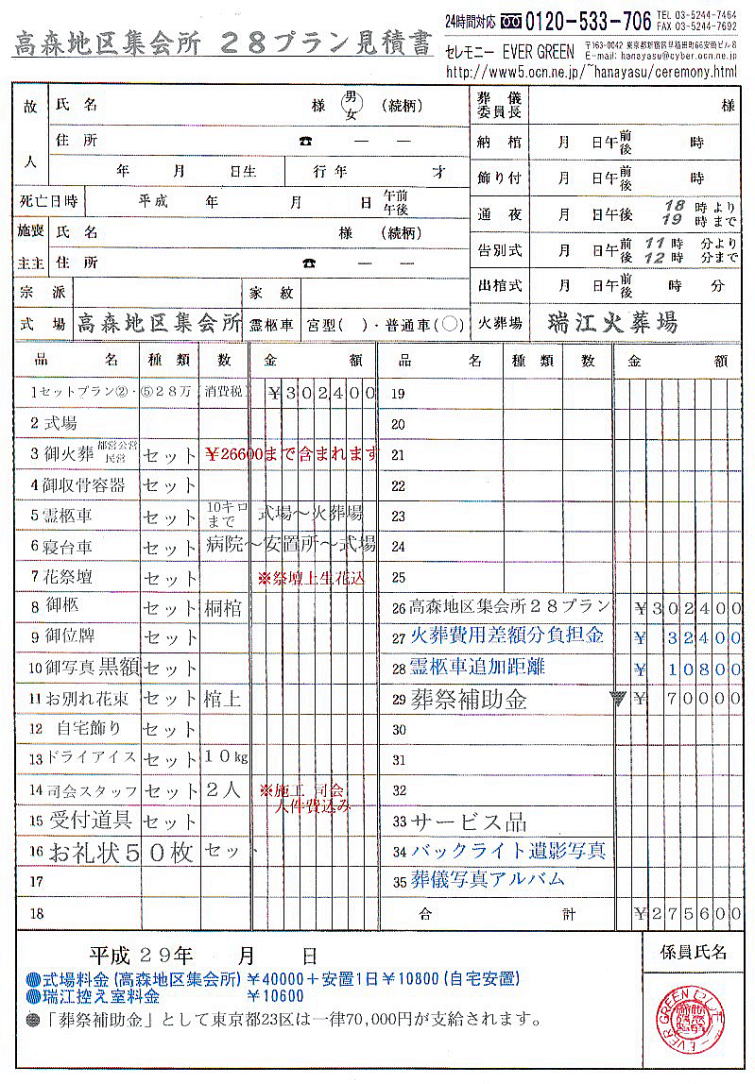 高森地区集会所 28プラン見積書
24時間対応 0120-533-706 TEL 03-5244-7464
FAX 03-5244-7692
セレモニー EVER GREEN 〒163-0042 東京都新宿区早稲田町66安島ビル8
E-mail: hanayasu@cyber.ocn.ne.jp
http://www5.ocn.ne.jp/~hanayasu/ceremony.html
故人 氏名 様 男 女 (続柄)
住所 ☎ — —
年 月 日生 行年 才
死亡日時 平成 年 月 日 午前 午後
施主 喪主 氏名 様 (続柄)
住所 ☎ — —
宗派 家紋
式場 高森地区集会所 霊柩車 宮型( )・普通車(○)
葬儀委員長 様
納棺 月 日午前後 時
飾り付 月 日午前後 時
通夜 月 日午後 18時より 19時まで
告別式 月 日午前後 11時 分より 12時 分まで
出棺式 月 日午前後 時 分
火葬場 瑞江火葬場
品名 種類 数 金額
1 セットプラン②・⑤28万 消費税 ¥302400
2 式場
3 御火葬 都営公営 民営 セット ¥26600まで含まれます
4 御収骨容器 セット
5 霊柩車 セット 10キロまで 式場〜火葬場
6 寝台車 セット 病院〜安置所〜式場
7 花祭壇 セット ※祭壇上生花込
8 御柩 セット 桐棺
9 御位牌 セット
10 御写真黒額 セット
11 お別れ花束 セット 棺上
12 自宅飾り セット
13 ドライアイス セット 10kg
14 司会スタッフ セット 2人 ※施工 司会 人件費込み
15 受付道具 セット
16 お礼状50枚 セット
17
18
品名 種類 数 金額
19
20
21
22
23
24
25
26 高森地区集会所28プラン ¥302400
27 火葬費用差額分負担金 ¥32400
28 霊柩車追加距離 ¥10800
29 葬祭補助金 ▼¥70000
30
31
32
33 サービス品
34 バックライト遺影写真
35 葬儀写真アルバム
合計 ¥275600
平成29年 月 日
係員氏名
●式場料金(高森地区集会所)¥40000+安置1日¥10800(自宅安置)
●瑞江控え室料金 ¥10600
●「葬祭補助金」として東京都23区は一律70,000円が支給されます。
EVER GREEN